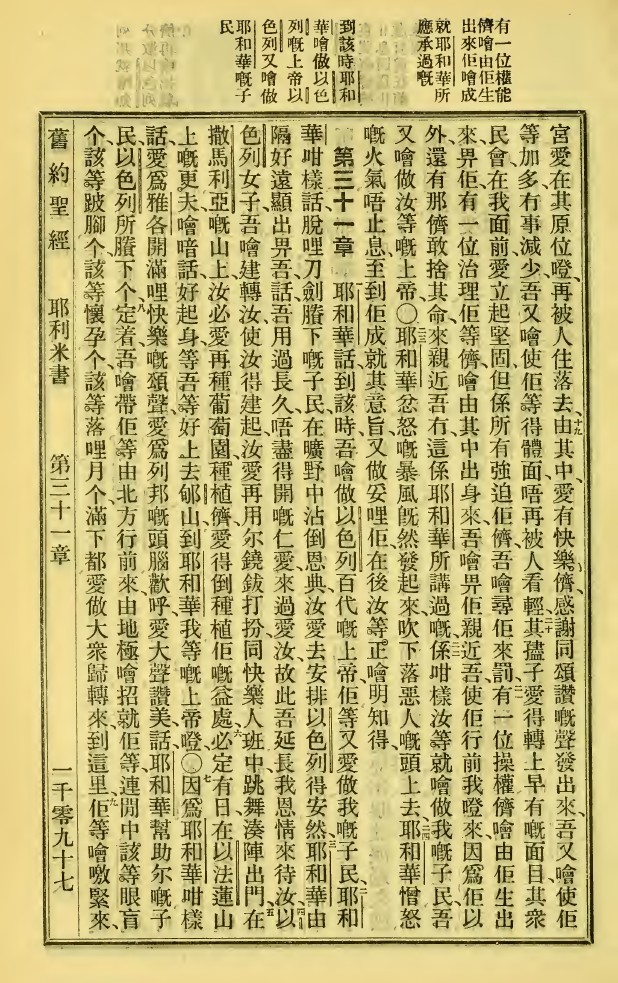 有一位權能
儕噲由佢生
出來佢噲成
就耶和華所
應承過嘅
到該時耶和
華噲做以色
列嘅上帝以
色列又噲做
耶和華嘅子
民
宮愛在其原位噔、再被人住落去、十九由其中、愛有快樂儕、感謝同頌讚嘅聲發出來、吾又噲使佢
等加多冇事減少、吾又噲使佢等得體面唔再被人看輕、二十其孻子愛得轉上早有嘅面目、其衆
民會在我面前愛立起堅固、但係所有強迫佢儕吾噲尋佢來罰、二一有一位操權儕噲由佢生出
來、畀佢有一位治理佢等儕、噲由其中出身來、吾噲畀佢親近吾、使佢行前我噔來、因爲佢以
外、還有那儕敢捨其命、來親近吾冇、這係耶和華所講過嘅、二二係咁樣汝等就噲做我嘅子民、吾
又噲做汝等嘅上帝、〇二三耶和華忿怒嘅暴風既然發起來、吹下落惡人嘅頭上去、二四耶和華憎怒
嘅火氣唔止息、至到佢成就其意旨、又做妥哩佢、在後汝等正噲明知得、
第三十一章 一耶和華話到該時、吾噲做以色列百代嘅上帝、佢等又愛做我嘅子民、二耶和
華咁樣話、脫哩刀劍賸下嘅子民、在曠野中沾倒恩典、汝愛去安排以色列得安然、三耶和華由
隔好遠顯出畀吾話、吾用過長久唔盡得開嘅仁愛來過愛汝、故此吾延長我恩情來待汝、四以
色列女子、吾噲建轉汝、使汝得建起、汝愛再用尔鐃鈸打扮、同快樂人班中跳舞湊陣出門、五在
撒馬利亞嘅山上、汝必愛再種葡萄園、種植儕愛得倒種植佢嘅益處、六必定有日在以法蓮山
上嘅更夫噲喑話、好起身等吾等好上去郇山、到耶和華我等嘅上帝噔、〇七因爲耶和華咁樣
話、愛爲雅各開滿哩快樂嘅頌聲、愛爲列邦嘅頭腦歡呼、愛大聲讚美話、耶和華幫助尔嘅子
民、以色列所賸下个、八定着吾噲帶佢等由北方行前來、由地極噲招就佢等、連開中該等眼盲
个、該等跛腳个、該等懷孕个、該等落哩月个、滿下都愛做大衆歸轉來到這里、九佢等噲噭緊來、
舊約聖經 耶利米書 第三十一章 一千零九十七